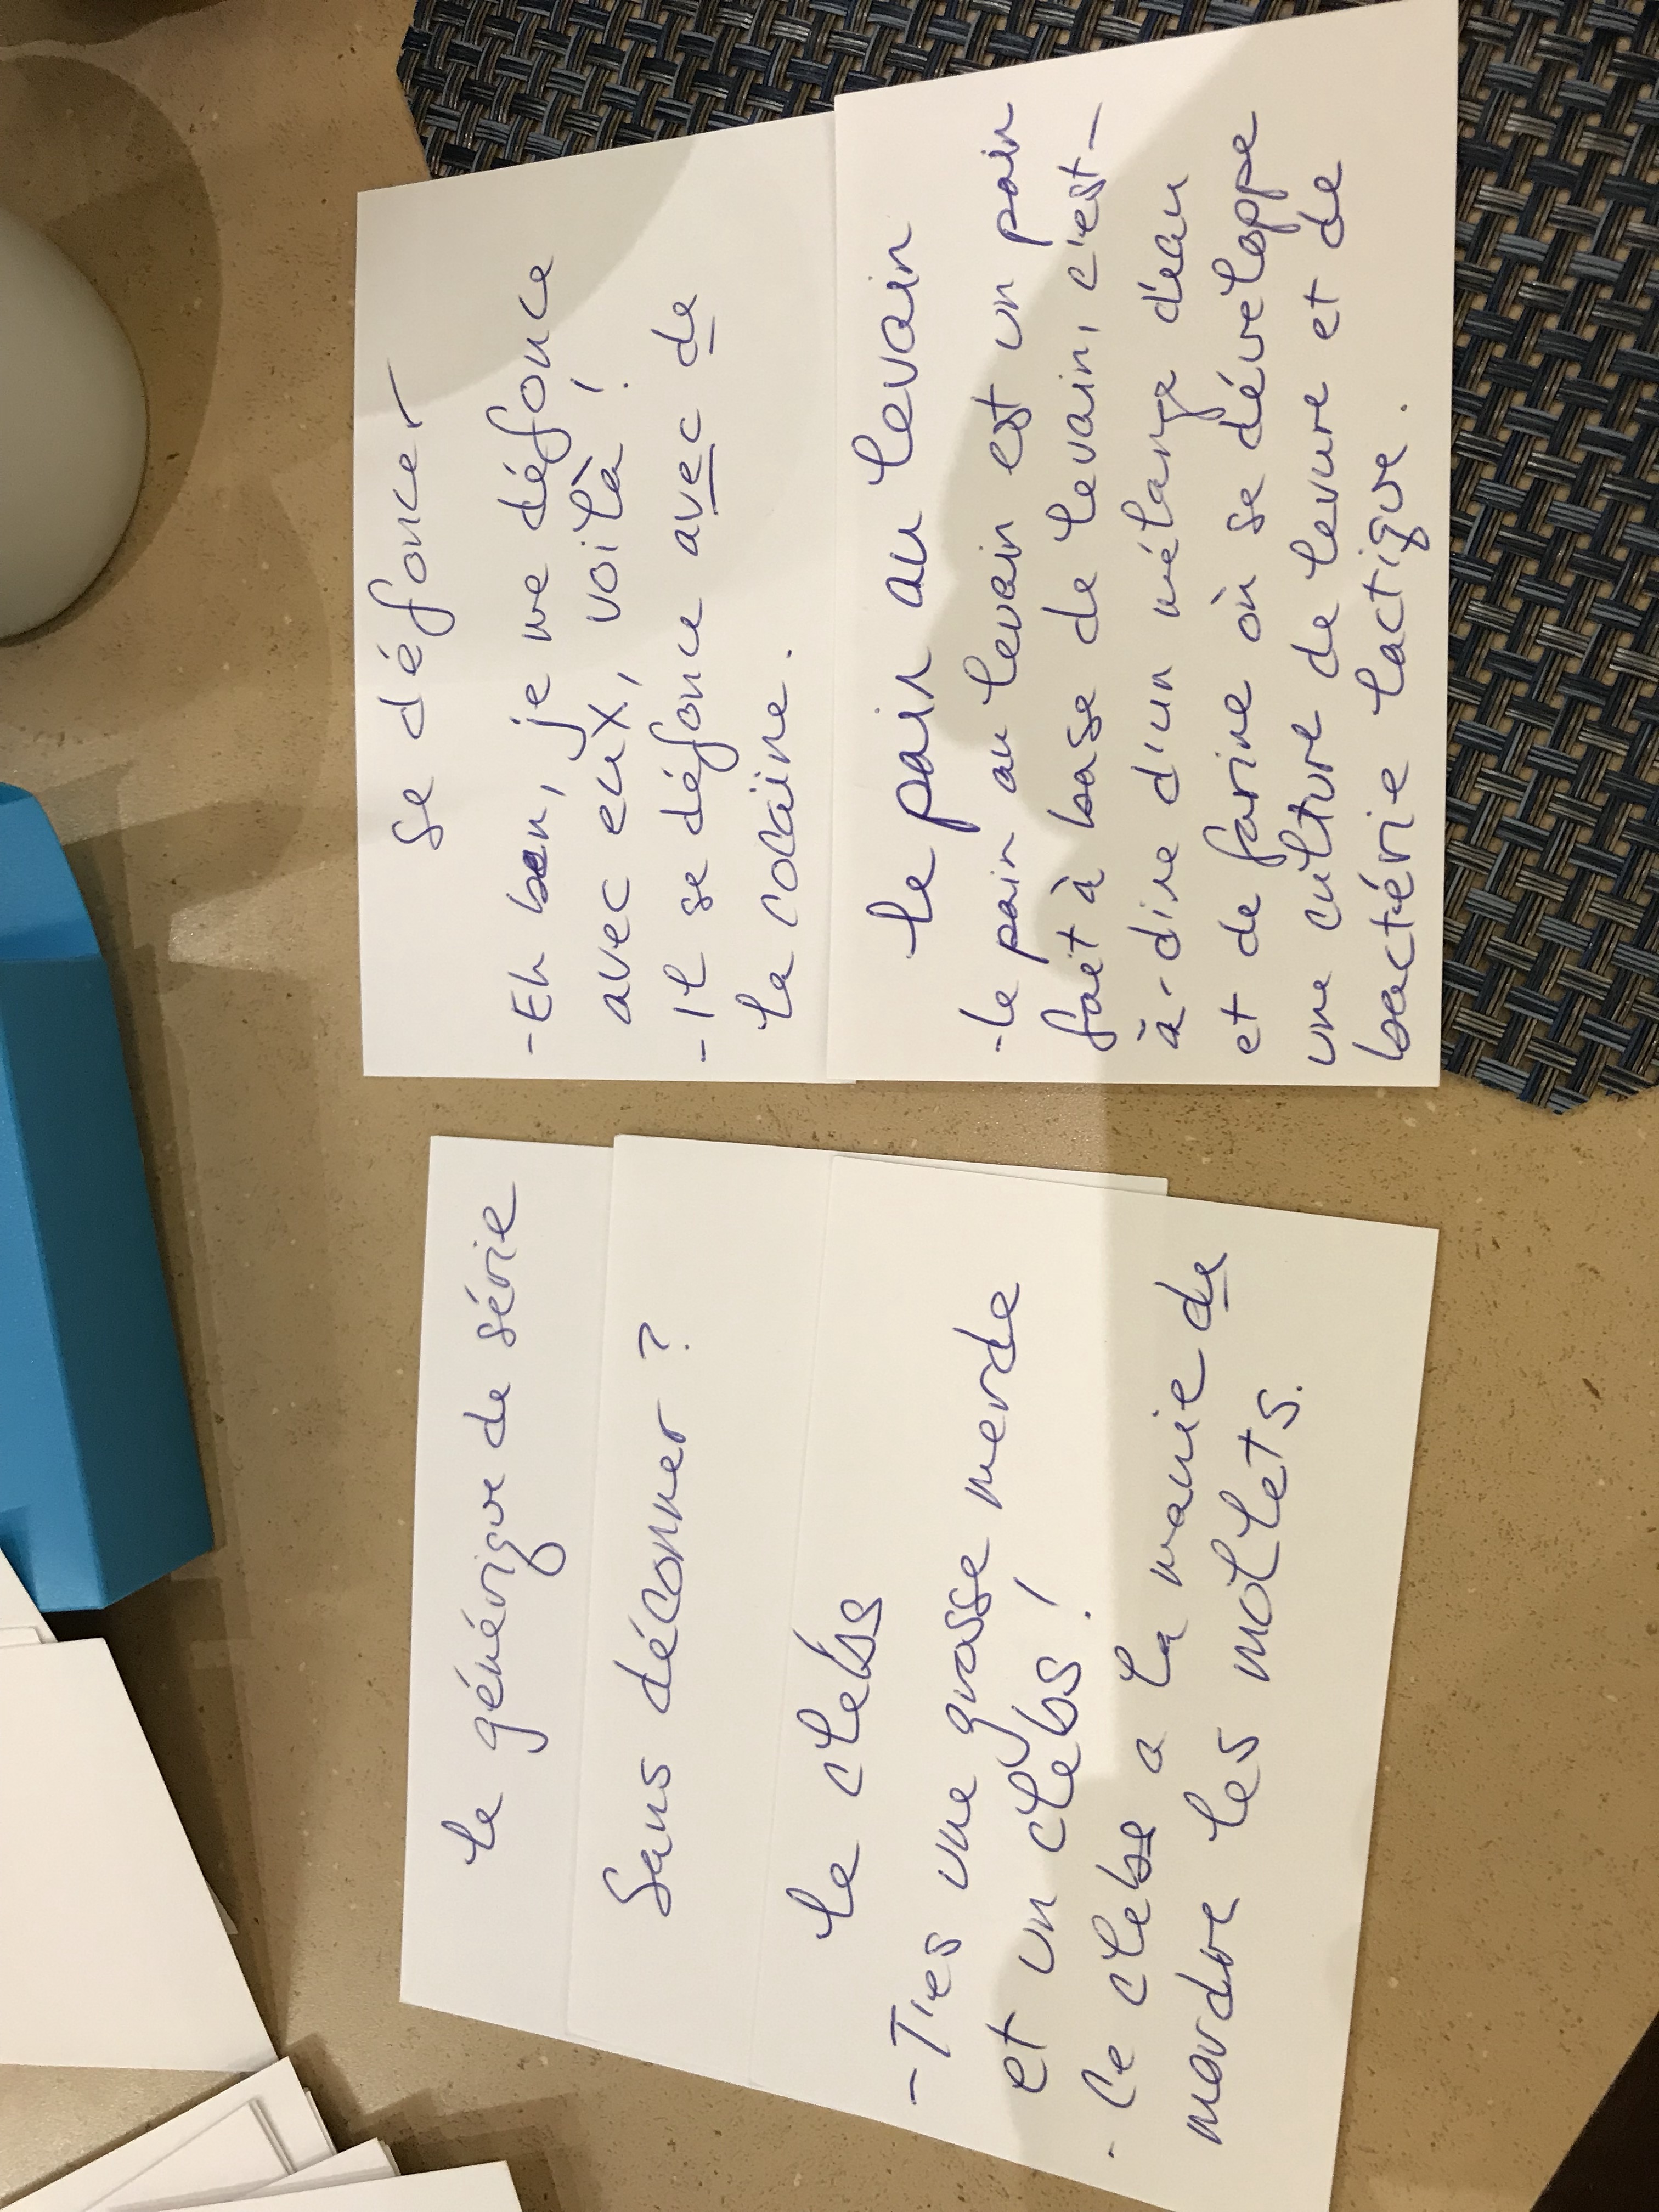 le générique de série
Sans déconner ?
le clebs
- T'es une grosse merde
et un clebs !
- Ce clebs a la manie de
mordre les mollets.
se défoncer
- Eh ben, je me défonce
avec eux, voilà !
- Il se défonce avec de
la cocaïne.
le pain au levain
- le pain au levain est un pain
fait à base de levain, c'est-
à-dire d'un mélange d'eau
et de farine où se développe
une culture de levure et de
bactérie lactique.